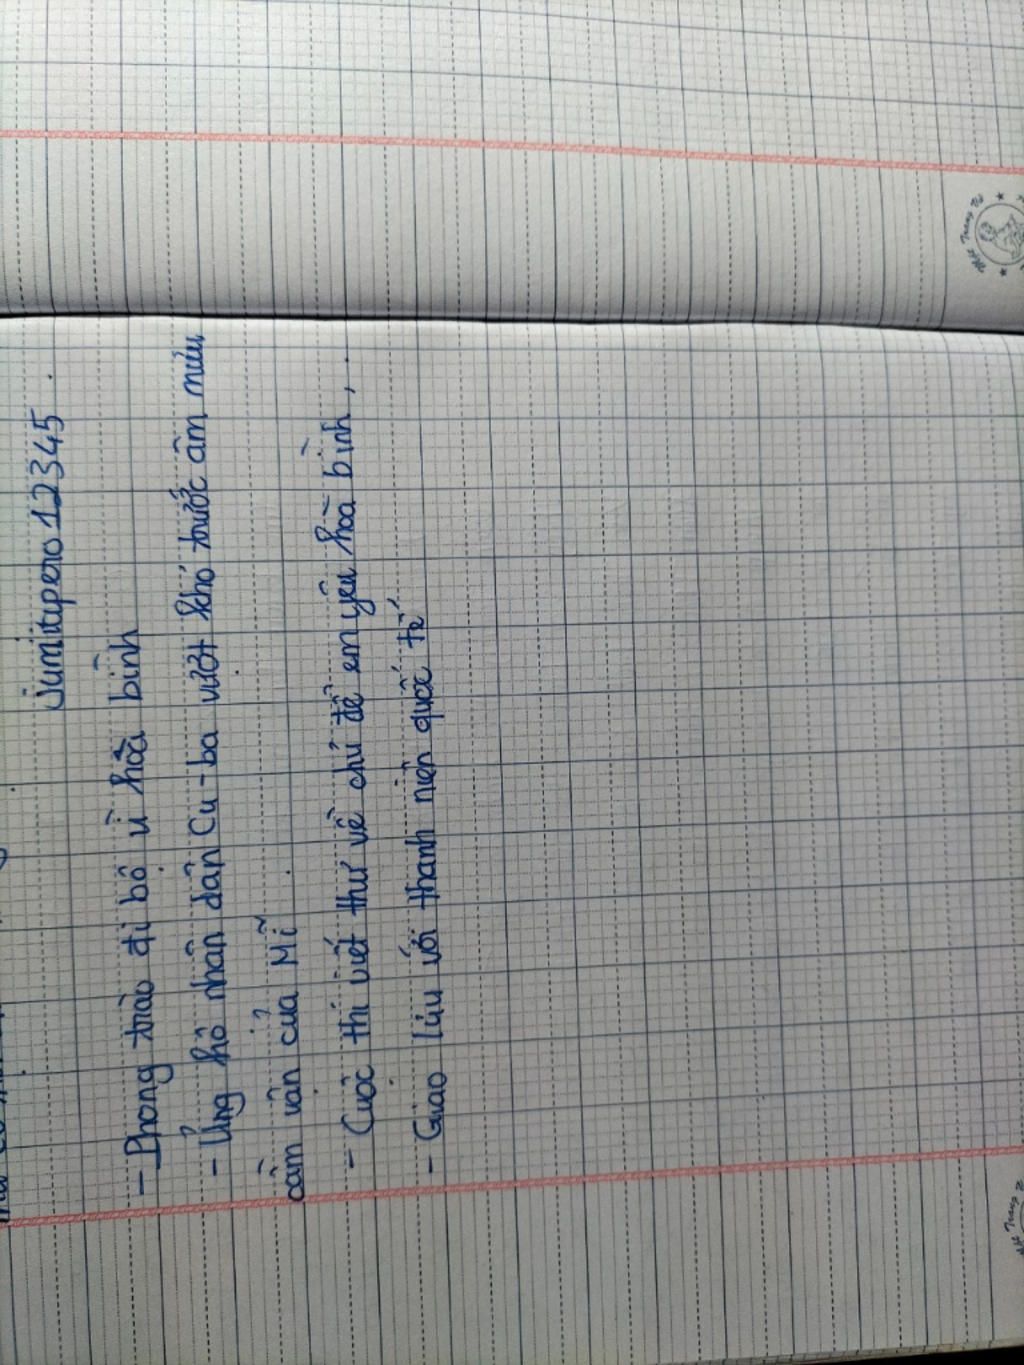 jumitupero12345
- Phong trào đi bộ vì hoà bình
- Ủng hộ nhân dân Cu-ba vượt khó trước âm mưu
cấm vân của Mĩ
- Cuộc thi viết thư về chủ đề em yêu hoà bình,
- Giao lưu với thanh niên quốc tế